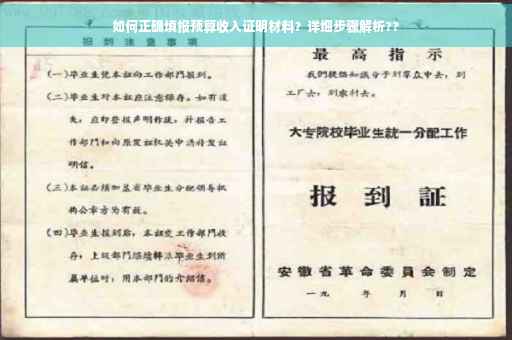 如何正确填报预算收入证明材料？详细步骤解析??
报到注意事项
（一）毕业生凭本证向工作部门报到。
（二）毕业生对本证应注意保存。如有遗
失，应即登报声明作废，并报告工
作部门和向原发证机关申请补发证
明信。
（三）本证必须加盖省毕业生分配领导机
构公章方为有效。
（四）毕业生报到后，本证交工作部门收
存；上级部门
毕业生到所
属单位时，用本部门的介绍信。
最高指示
我们提倡知识分子到群众中去，到
工厂去，到农村去。
大专院校毕业生統一分配工作
报到証
安徽省革命委員会制定
一九 年 月 日